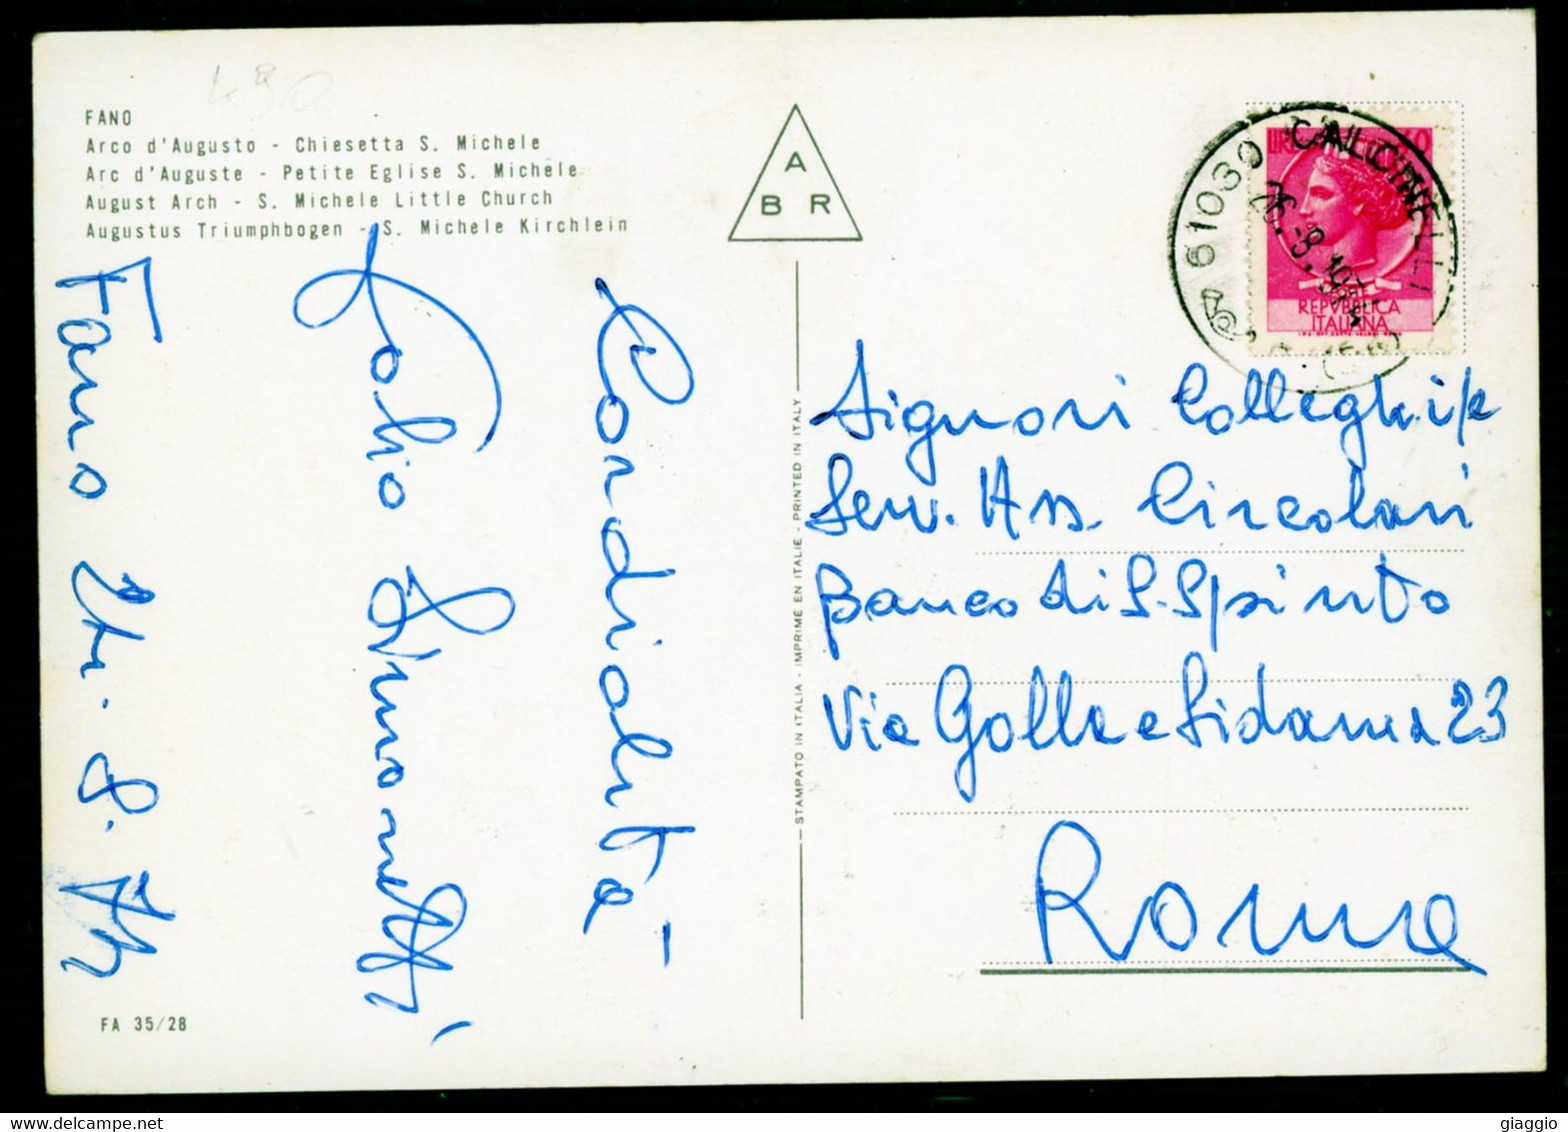 490
FANO
Arco d'Augusto - Chiesetta S. Michele
Arc d'Auguste - Petite Eglise S. Michele
August Arch - S. Michele Little Church
Augustus Triumphbogen - S. Michele Kirchlein
A
B R
61030 CALCINELLI
26.-8.1974
(PS)
LIRE
REPVBBLICA
ITALIANA
Cordialità -
Fabio Simonetti
Fano 24.8.74
STAMPATO IN ITALIA - IMPRIME EN ITALIE - PRINTED IN ITALY
Signori Colleghi/e
Serv. Ass. Circolari
Banco di S. Spirito
Via Golla e Sidama 23
Roma
FA 35/28
giaggio